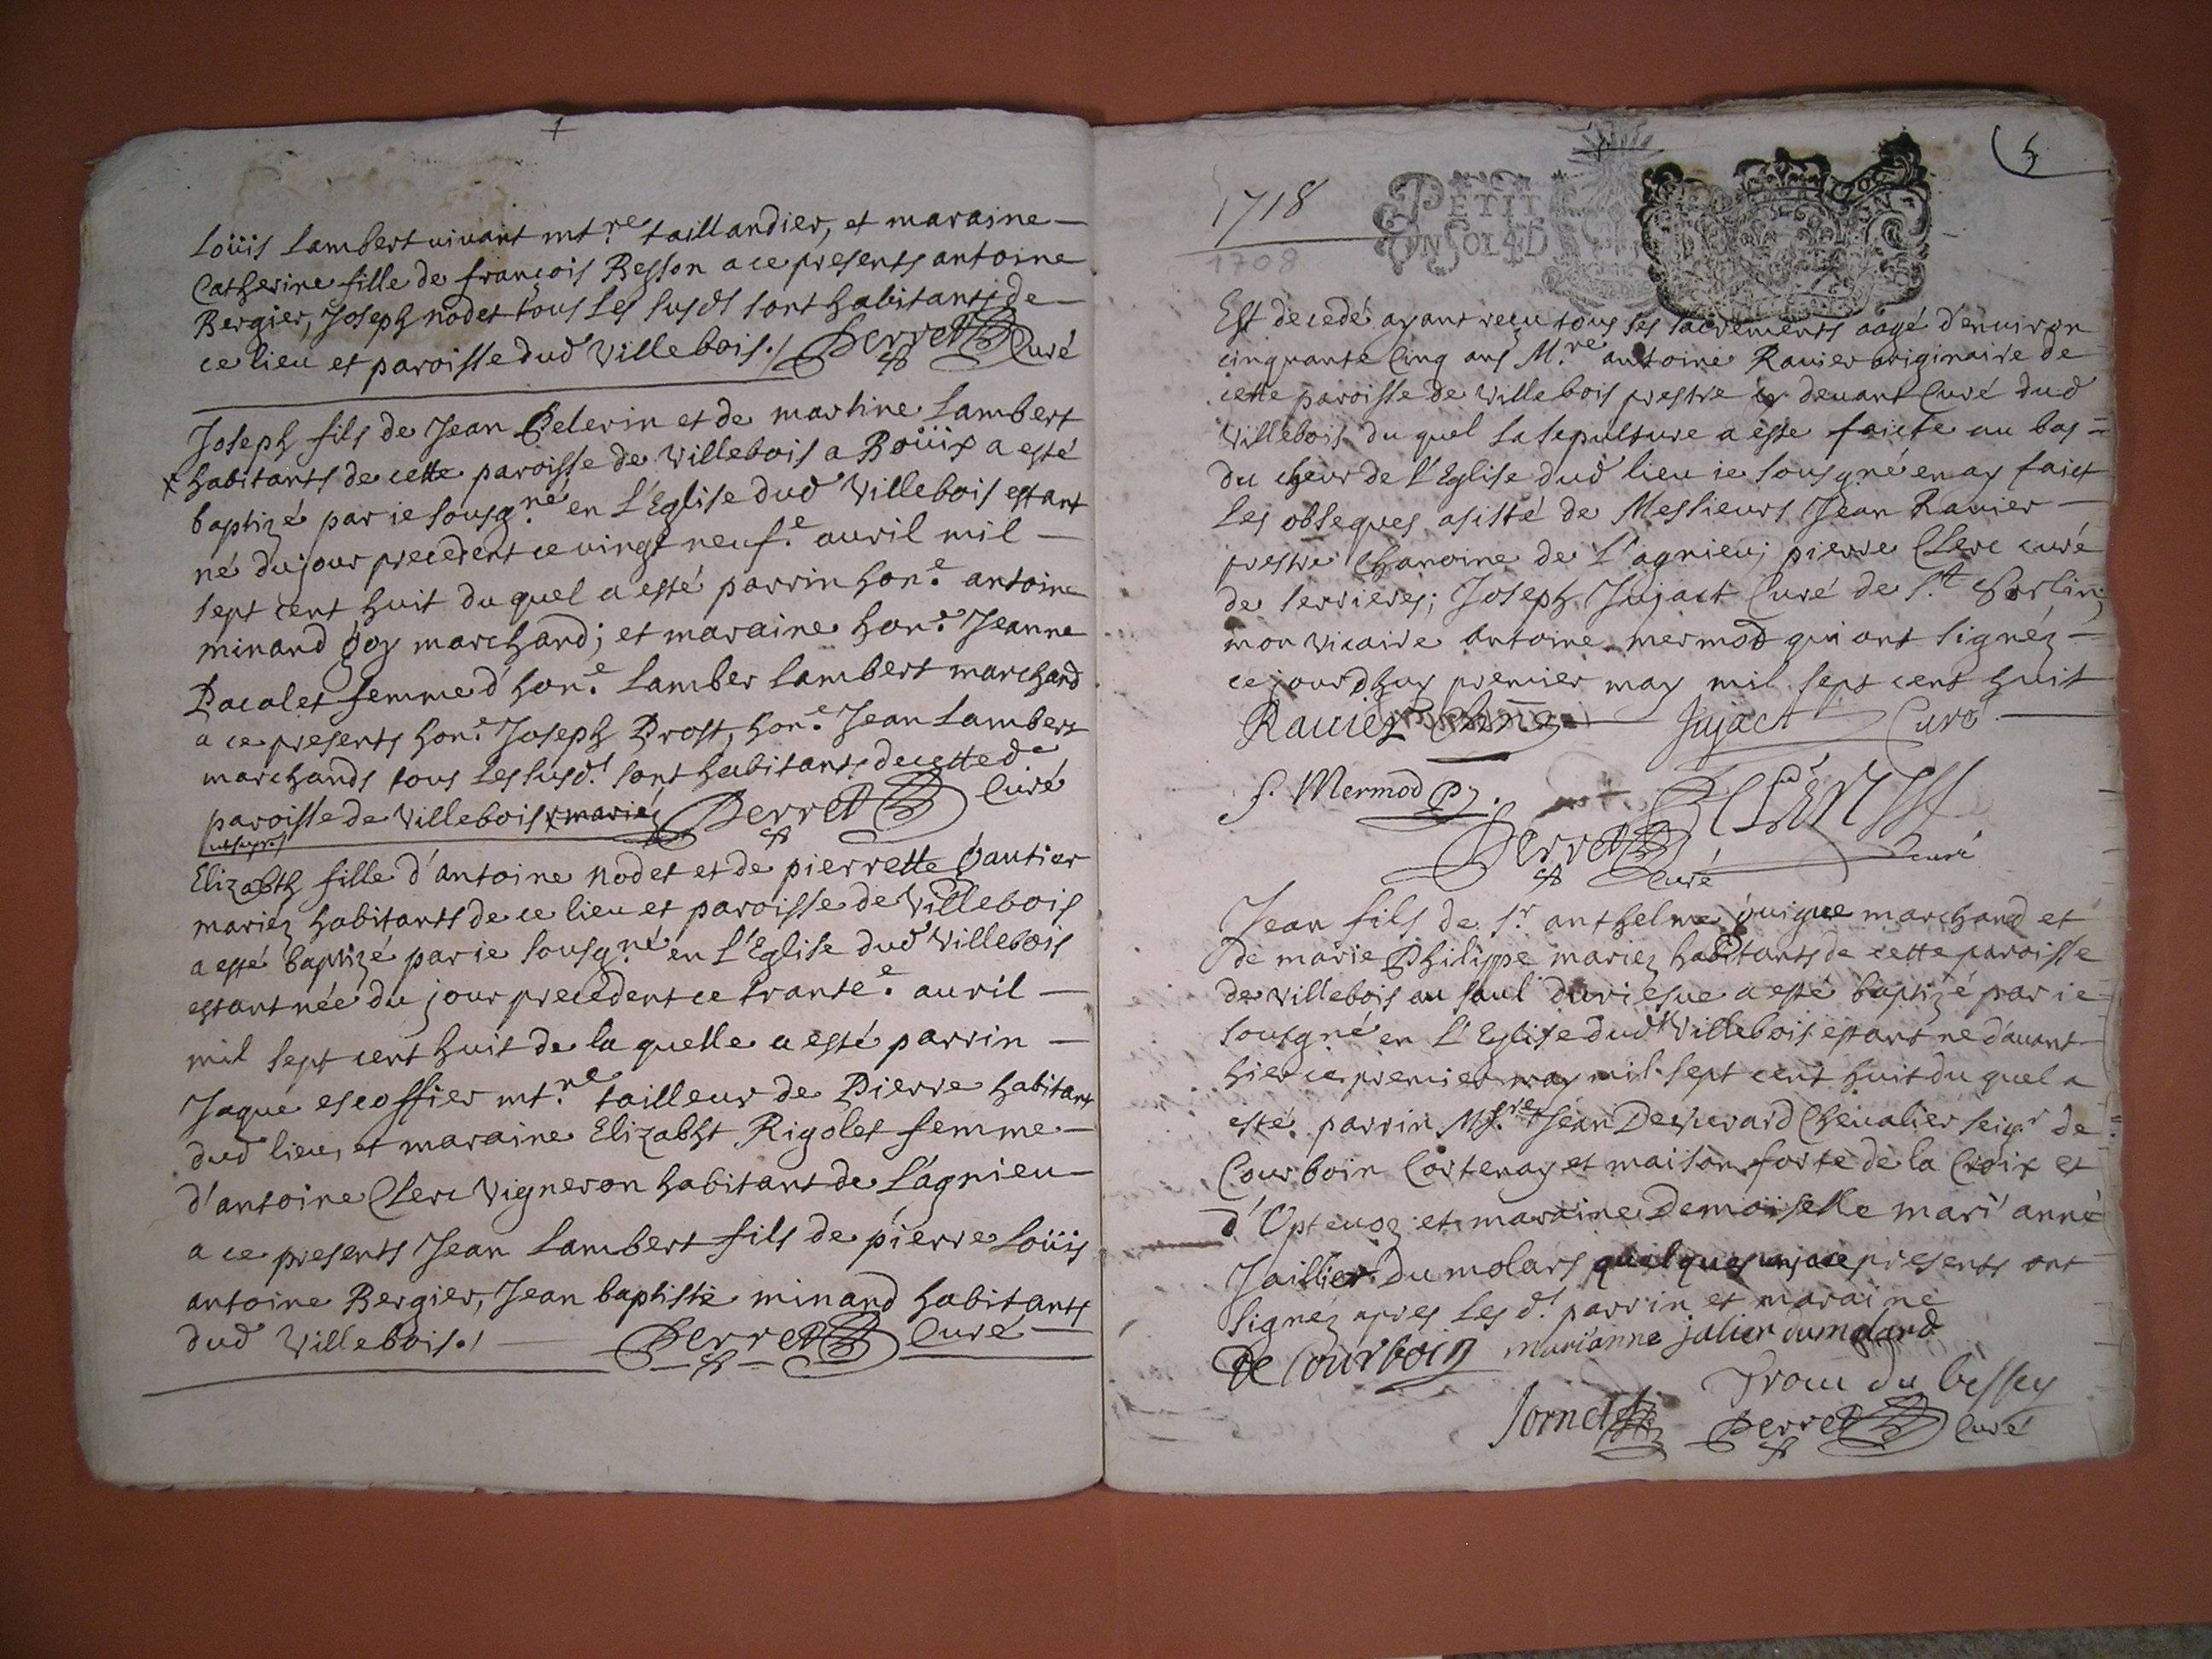 Loüis Lambert vivant mt.re taillandier, et maraine
Catherine fille de françois Besson a ce presents antoine
Bergier, Joseph nodet tous les susd.s sont habitants de
ce lieu et paroisse dud Villebois./ Perret Curé
Joseph fils de Jean Pelerin et de martine Lambert
x habitants de cette paroisse de Villebois a Boüix a esté
baptizé par ie sousg.né en L'Eglise dud Villebois estant
né du jour precedent ce vingt neuf.e auril mil
sept cent huit du quel a esté parrin hon.e antoine
minand goy marchand; et maraine hon.e Jeanne
Pacalet femme d'hon.e Lamber Lambert marchand
a ce presents hon.e Joseph Prost, hon.e Jean Lambert
marchands tous les susd.s sont habitants de cette d.e
paroisse de Villebois x mariéz Perret Curé
Elizabth fille d'antoine nodet et de pierrette gautier
mariez habitants de ce lieu et paroisse de Villebois
a esté baptizé par ie sousg.né en L'Eglise dud Villebois
estant née du jour precedent ce trante.e auril
mil sept cent huit de la quelle a esté parrin
Jaque escoffier mt.re tailleur de Pierre habitant
dud lieu, et maraine Elizabht Rigolet femme
d'antoine Clerc Vigneron habitant de L'agnieu
a ce presents Jean Lambert fils de pierre Loüis
antoine Bergier, Jean baptiste minand habitants
dud Villebois./ Perret Curé
5
1718
1708
PETIT
UN SOL 4 D
Est decedé ayant reçu tous ses sacrements aagé d'enuiron
cinquante Cinq ans M.re antoine Rauier originaire de
cette paroisse de Villebois prestre cy deuant Curé dud
Villebois du quel la sepulture a esté faicte au bas
du cheur de L'Eglise dud lieu ie sousgné en ay faict
les obseques asisté de Messieurs Jean Rauier
prestre Chanoine de L'agnieu; pierre Clerc curé
de serrieres; Joseph Jujact Curé de S.t Sorlin;
mon vicaire antoine mermod qui ont signéz
ce jourdhuy premier may mil sept cent huit
Rauier Jujact Curé
Mermod
Perret Curé Clerc curé
Jean fils de s.r anthelme guigue marchand et
de marie Philippe mariez habitants de cette paroisse
de Villebois au saul a esté baptizé par ie
sousgné en L'Eglise dud Villebois estant ne d'auant
hier ce premier may mil sept cent huit du quel a
esté parrin Jean Cheualier seig.r de
Courboin Cortenay et maison forte de la Croix et
d'Opteuoz et maraine Demoiselle mari'anne
Jaillier du molars presents ont
Signéz apres les d.s parrin et maraine
De Courboin marianne jalier dumolard
Perret Curé